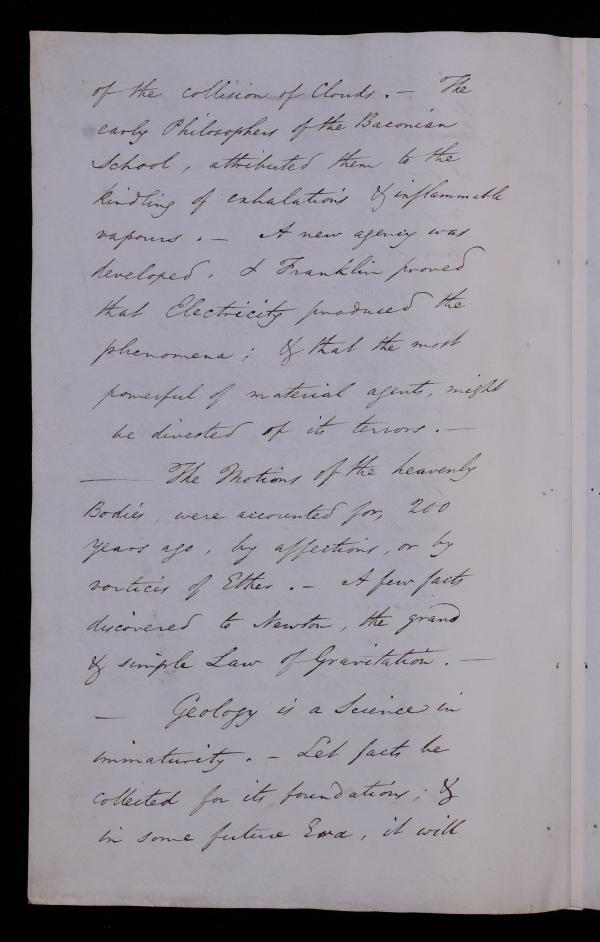 of the collision of Clouds. — The
early Philosophers of the Baconian
School, attributed them to the
kindling of exhalations & inflammable
vapours. — A new agency was
developed. & Franklin proved
that Electricity produced the
phenomena; & that the most
powerful of material agents, might
be divested of its terrors. —
— The Motions of the heavenly
Bodies, were accounted for, 200
years ago, by affections, or by
vortices of Ether. — A few facts
discovered to Newton, the grand
& simple Law of Gravitation. —
— Geology is a Science in
immaturity. — Let facts be
collected for its foundations; &
in some future Era, it will